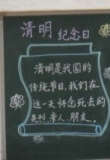 清明 纪念日
清明是我国的
传统节日,我们在
这一天怀念死去的
先烈、亲人、朋友。